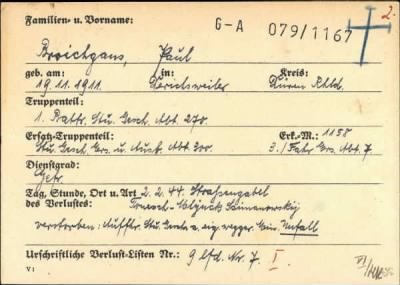 2.
Familien- u. Vorname: G-A 079/1167
Broichgans, Paul
geb. am: in: Kreis:
19.11.1911 Derichsweiler Düren Rhld.
Truppenteil:
1. Battr. Stu. Gesch. Abt. 270.
Ersatz-Truppenteil: Erk.-M.: 1158
Stu. Gesch. Ers. u. Ausb. Abt. 300. 3./Fahr Ers. Abt. 7
Dienstgrad:
Gefr.
Tag, Stunde, Ort u. Art 2.2.44 Straßengabel
des Verlustes:
verstorben: Unfall
Urschriftliche Verlust-Listen Nr.: 9 lfd. Nr. 7 I.
V 1 VI